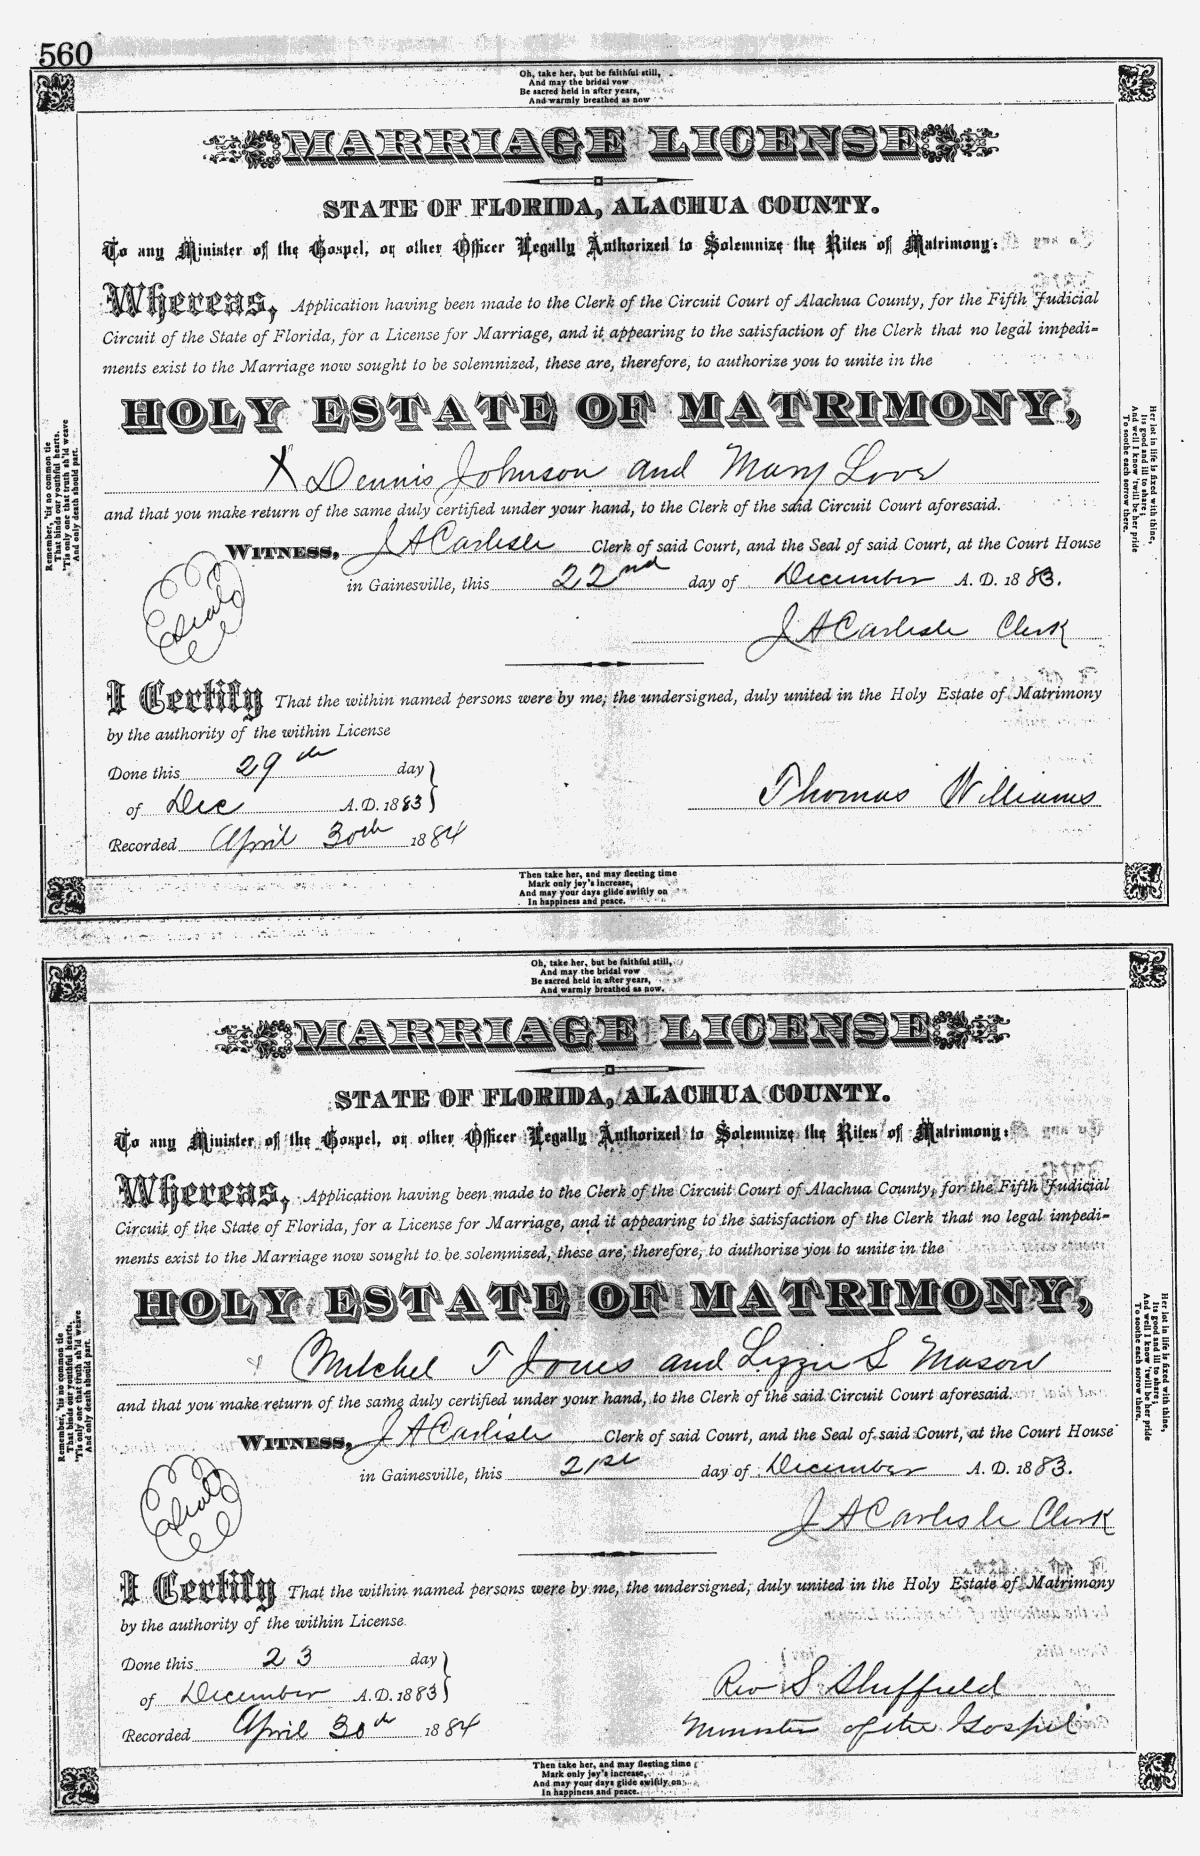 560
Oh, take her, but be faithful still,
And may the bridal vow
Be sacred held in after years,
And warmly breathed as now
MARRIAGE LICENSE
STATE OF FLORIDA, ALACHUA COUNTY.
To any Minister of the Gospel, or other Officer Legally Authorized to Solemnize the Rites of Matrimony:
Whereas, Application having been made to the Clerk of the Circuit Court of Alachua County, for the Fifth Judicial
Circuit of the State of Florida, for a License for Marriage, and it appearing to the satisfaction of the Clerk that no legal impedi-
ments exist to the Marriage now sought to be solemnized, these are, therefore, to authorize you to unite in the
HOLY ESTATE OF MATRIMONY,
X Dennis Johnson and Mary Love
and that you make return of the same duly certified under your hand, to the Clerk of the said Circuit Court aforesaid.
WITNESS, J A Carlisle Clerk of said Court, and the Seal of said Court, at the Court House
in Gainesville, this 22nd day of December A. D. 1883.
Seal
J A Carlisle Clerk
I Certify That the within named persons were by me, the undersigned, duly united in the Holy Estate of Matrimony
by the authority of the within License
Done this 29th day
of Dec A.D. 1883
Thomas Williams
Recorded April 30th 1884
Remember, 'tis no common tie
That binds our youthful hearts.
'Tis only one that truth sh'ld weave
And only death should part.
Her lot in life is fixed with thine,
Its good and ill to share;
And well I know 'twill be her pride
To soothe each sorrow there.
Then take her, and may fleeting time
Mark only joy's increase,
And may your days glide swiftly on
In happiness and peace.
Oh, take her, but be faithful still,
And may the bridal vow
Be sacred held in after years,
And warmly breathed as now.
MARRIAGE LICENSE
STATE OF FLORIDA, ALACHUA COUNTY.
To any Minister of the Gospel, or other Officer Legally Authorized to Solemnize the Rites of Matrimony:
Whereas, Application having been made to the Clerk of the Circuit Court of Alachua County, for the Fifth Judicial
Circuit of the State of Florida, for a License for Marriage, and it appearing to the satisfaction of the Clerk that no legal impedi-
ments exist to the Marriage now sought to be solemnized, these are, therefore, to authorize you to unite in the
HOLY ESTATE OF MATRIMONY,
Mitchel T Jones and Lizzie S Mason
and that you make return of the same duly certified under your hand, to the Clerk of the said Circuit Court aforesaid.
WITNESS, J A Carlisle Clerk of said Court, and the Seal of said Court, at the Court House
in Gainesville, this 21st day of December A. D. 1883.
Seal
J A Carlisle Clerk
I Certify That the within named persons were by me, the undersigned, duly united in the Holy Estate of Matrimony
by the authority of the within License.
Done this 23 day
of December A.D. 1883
Rev S Sheffield
Recorded April 30th 1884
Minister of the Gospel
Remember, 'tis no common tie
That binds our youthful hearts.
'Tis only one that truth sh'ld weave
And only death should part.
Her lot in life is fixed with thine,
Its good and ill to share;
And well I know 'twill be her pride
To soothe each sorrow there.
Then take her, and may fleeting time
Mark only joy's increase,
And may your days glide swiftly on
In happiness and peace.